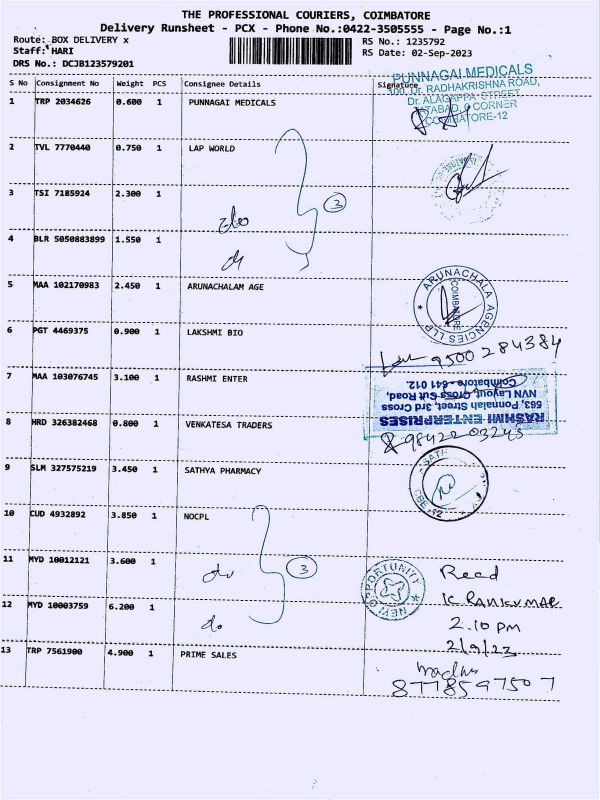 THE PROFESSIONAL COURIERS, COIMBATORE
Delivery Runsheet - PCX - Phone No.:0422-3505555 - Page No.:1
Route: BOX DELIVERY x
RS No.: 1235792
Staff: HARI
RS Date: 02-Sep-2023
DRS No.: DCJB123579201
S No Consignment No Weight PCS Consignee Details Signature
PUNNAGAI MEDICALS
100, Dr. RADHAKRISHNA ROAD,
Dr. ALAGAPPA STREET,
TATABAD, 9 CORNER
COIMBATORE-12
1 TRP 2034626 0.600 1 PUNNAGAI MEDICALS
2 TVL 7770440 0.750 1 LAP WORLD
3 TSI 7185924 2.300 1 do 3
4 BLR 5050883899 1.550 1 do
5 MAA 102170983 2.450 1 ARUNACHALAM AGE
ARUNACHALA AGENCIES LLP
COIMBATORE
6 PGT 4469375 0.900 1 LAKSHMI BIO
9500284384
7 MAA 103076745 3.100 1 RASHMI ENTER
RASHMI ENTERPRISES
563, Ponnaiah Street, 3rd Cross
NVN Layout, Cross Cut Road,
Coimbatore - 641 012.
8 HRD 326382468 0.800 1 VENKATESA TRADERS
9842203245
9 SLM 327575219 3.450 1 SATHYA PHARMACY
SATH
CBE-12
10 CUD 4932892 3.850 1 NOCPL
11 MYD 10012121 3.600 1 do 3
NEW OPPORTUNITY
Recd
12 MYD 10003759 6.200 1 do
K RAMKUMAR
2.10 PM
2/9/23
13 TRP 7561900 4.900 1 PRIME SALES
8778597507